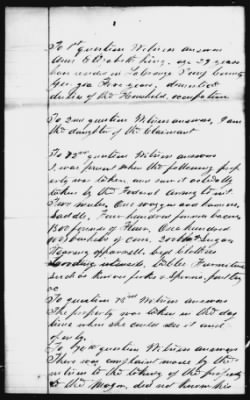 To 1st question Witness answers
Ann Elizabeth King, age 29 years
has resided in LaGrange Troup County
Georgia Five years, domestic
duties of the Household, occupation
To 2nd question Witness answers, I am
the daughter of the Claimant
To 72nd question Witness answers
I was present when the following prop-
erty was taken and saw it actually
taken by the Federal Army to wit
Two mules, One waggon and harness,
Saddle, Four hundred pounds bacon
800 pounds of Flour, One hundred
bushels of corn, 200 lbs Sugar
wearing apparel, bed clothes
Table Furniture
such as knives forks & spoons,
&c
To question 73rd Witness answers
The property was taken in the day
time when she could see it and
openly
To question Witness answers
There was complaint made by the
witness to the taking of the property
to the Major, did not know his